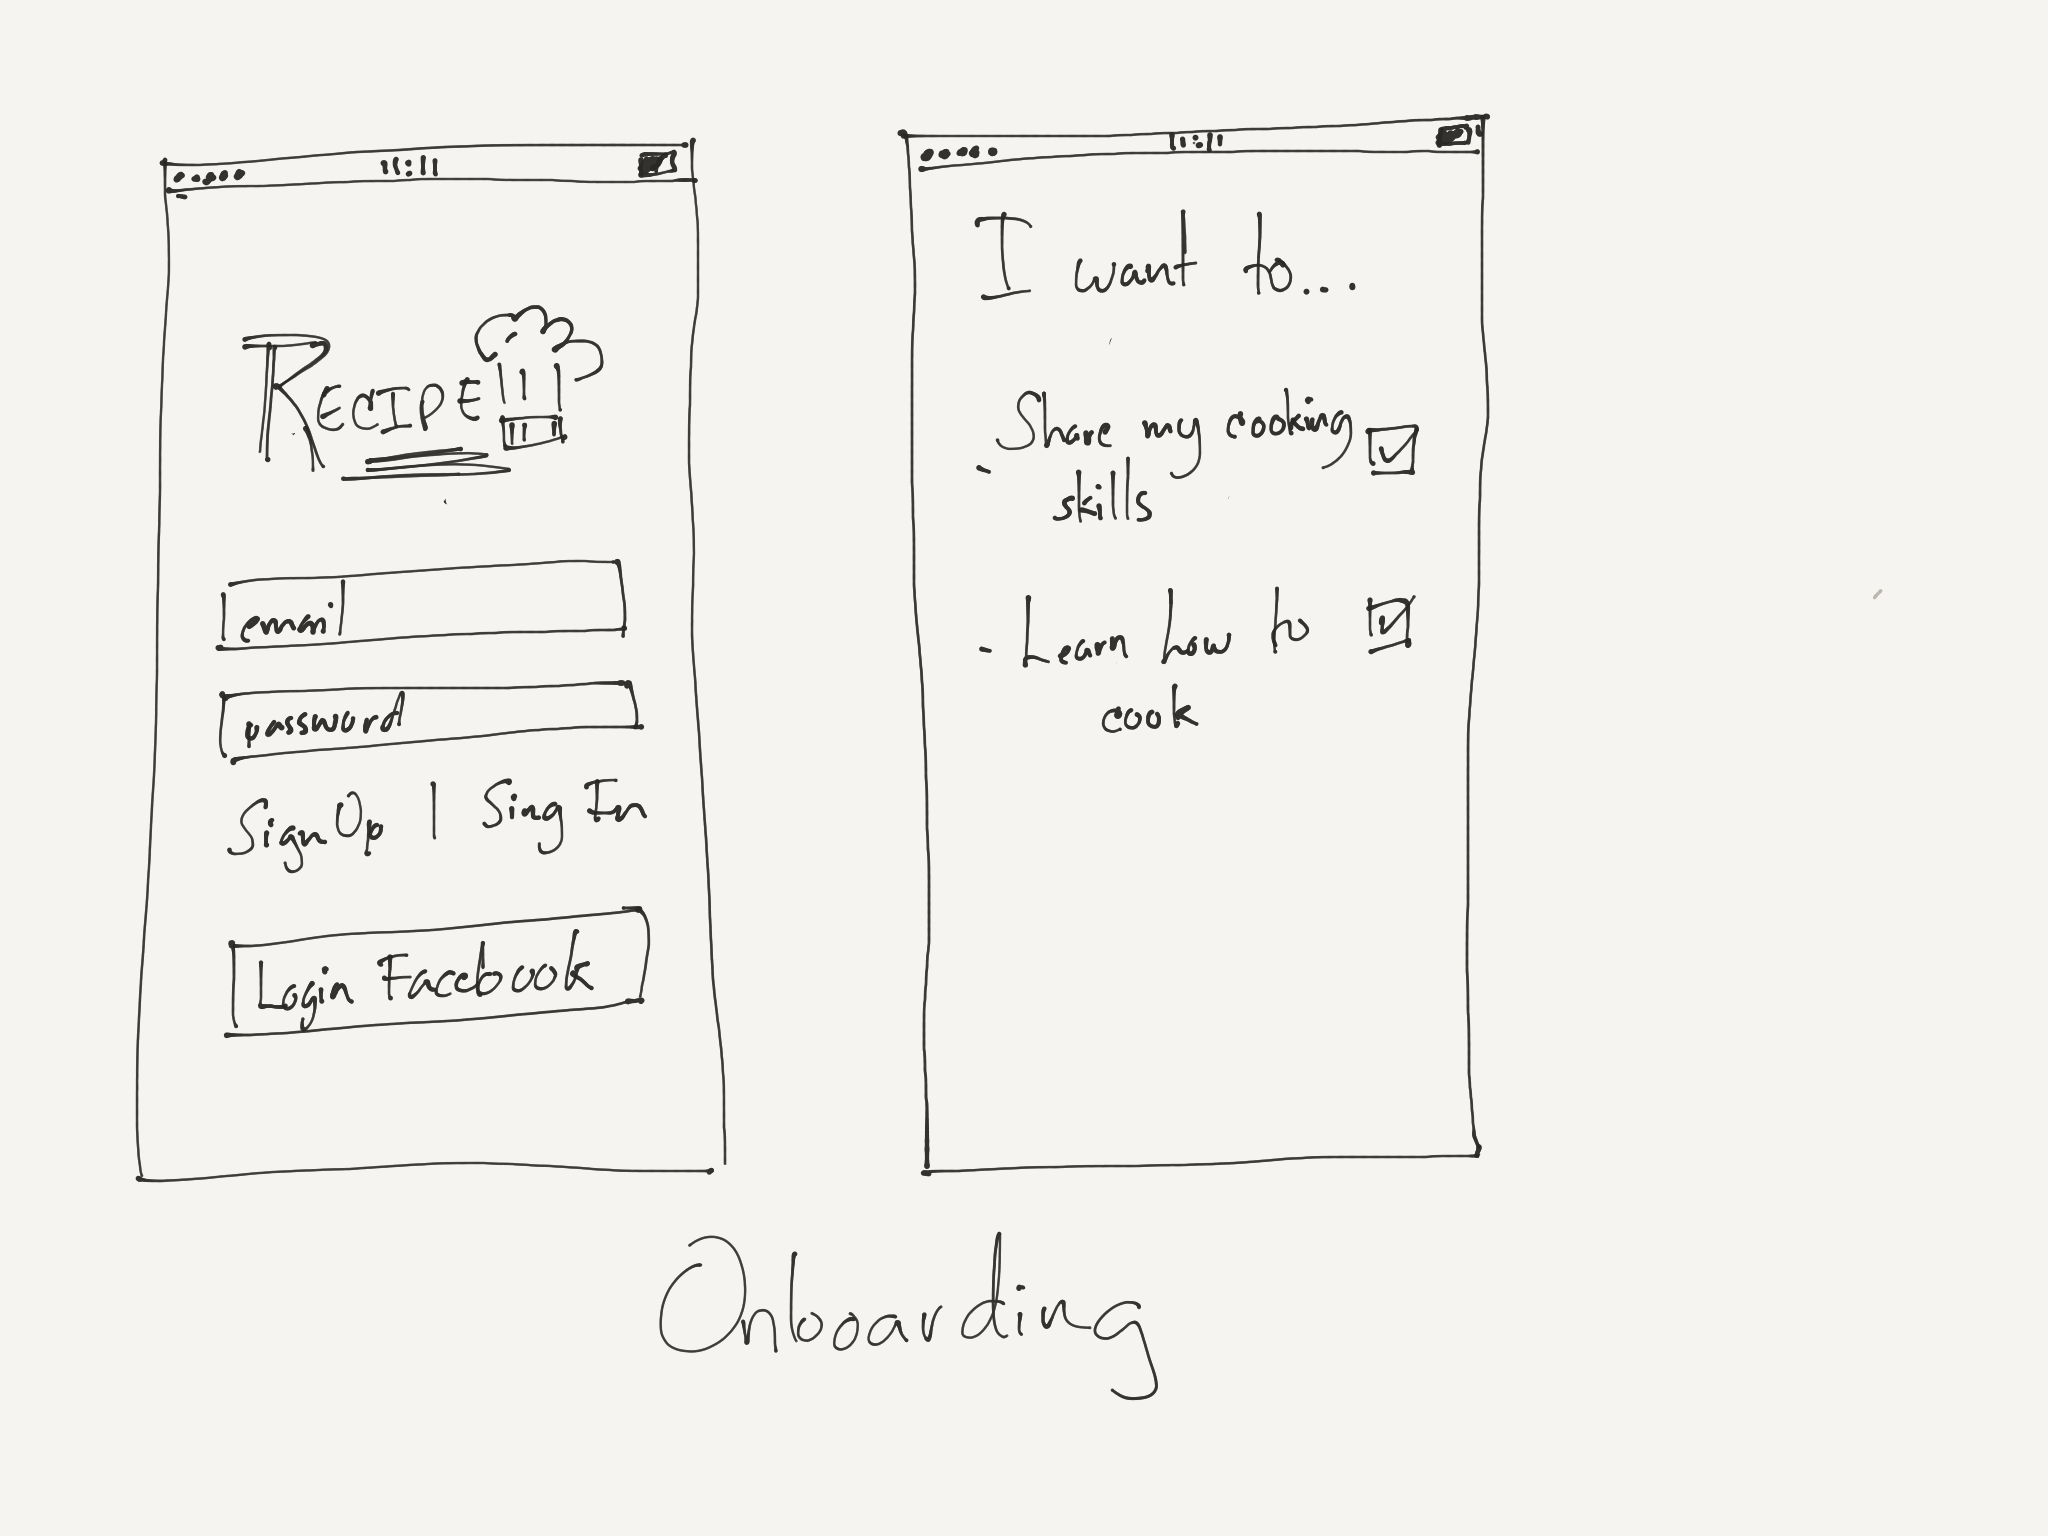 11:11
RECIPE
email
password
Sign Op | Sing In
Login Facebook
11:11
I want to...
Share my cooking
- skills
- Learn how to
cook
Onboarding